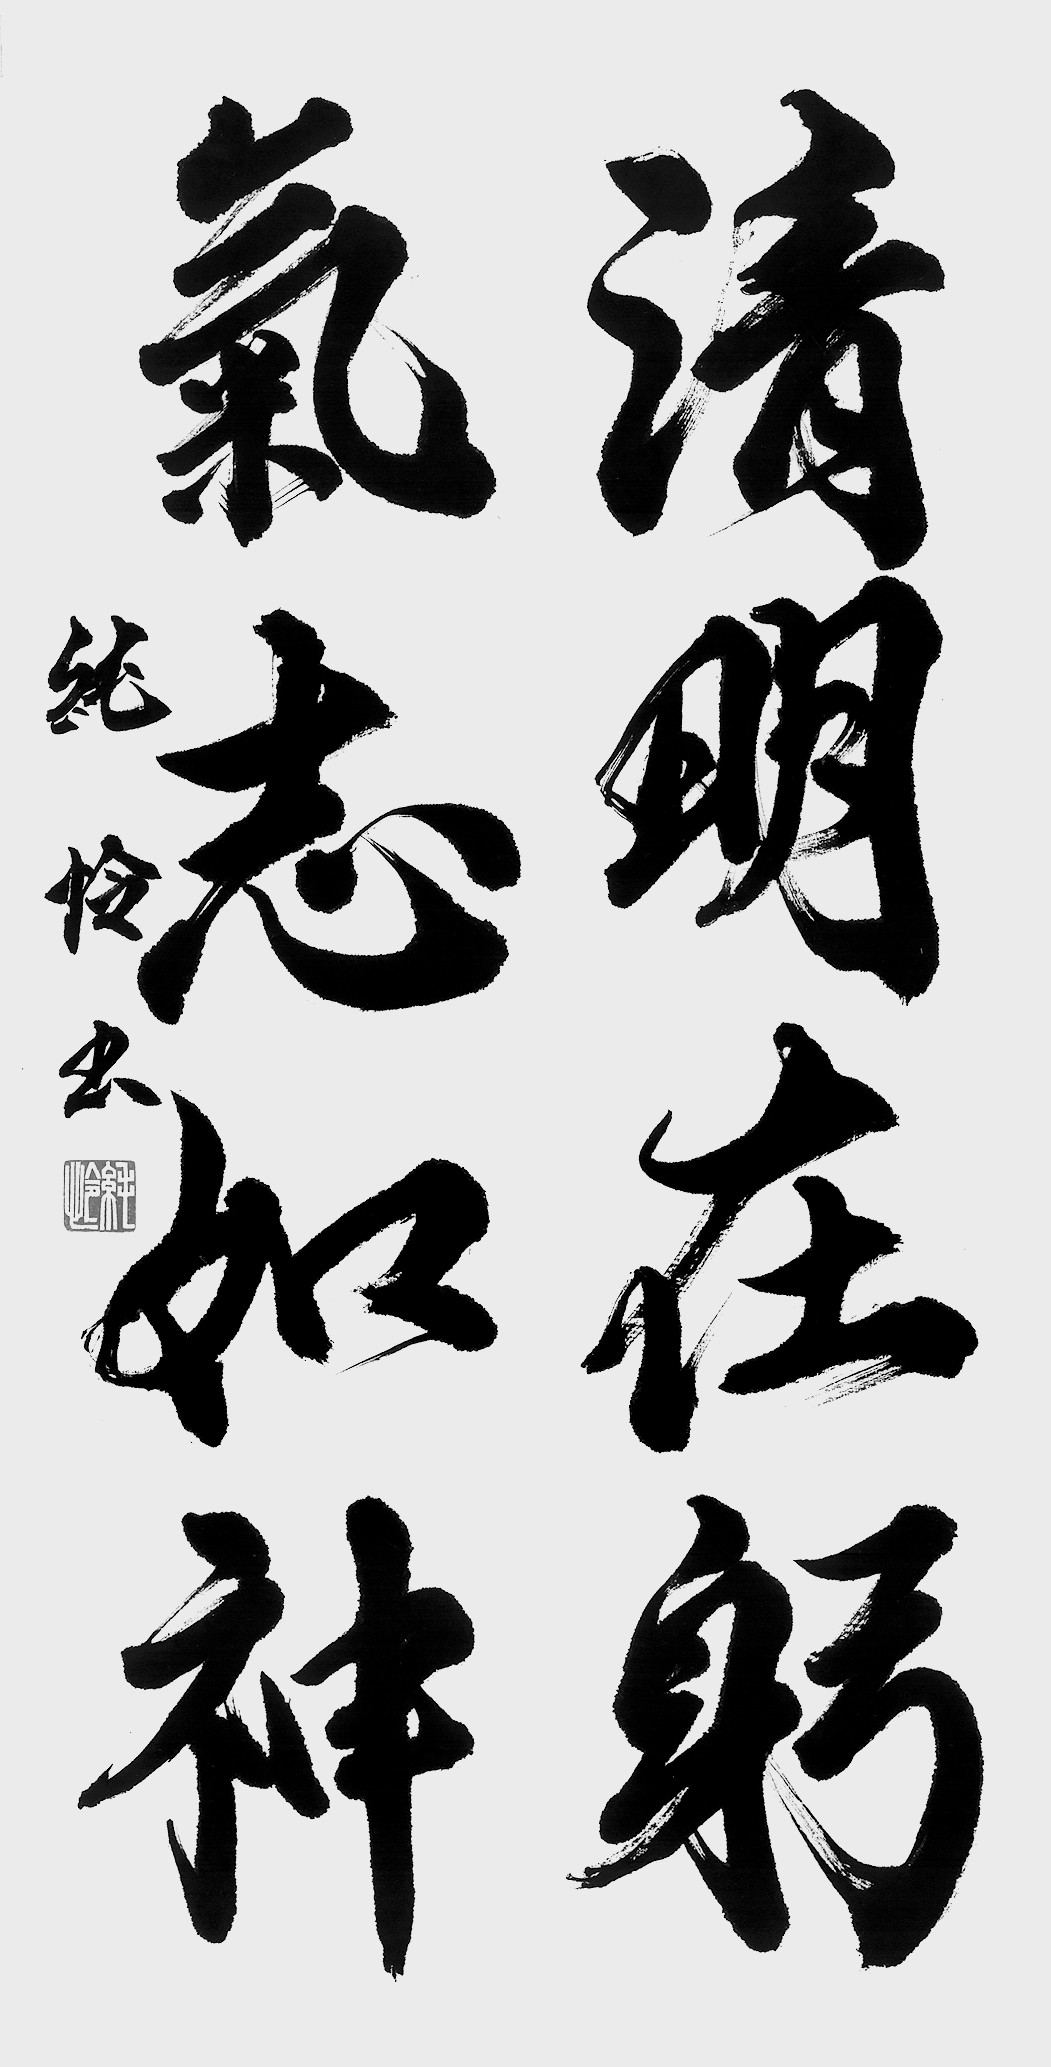 清明在躬
氣志如神
純怜書
純怜